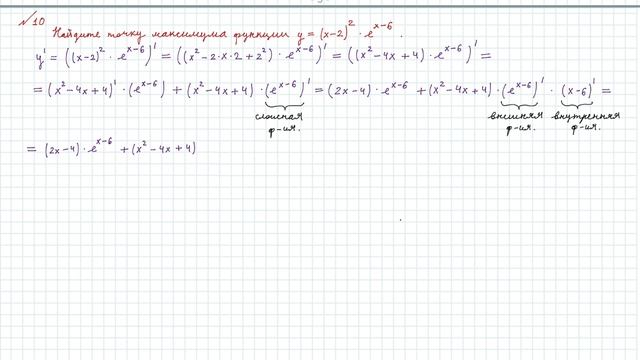 √10 Найдите точку максимума функции y = (x-2)² · e^(x-6) .
y' = ((x-2)² · e^(x-6))' = ((x² - 2·x·2 + 2²) · e^(x-6))' = ((x² - 4x + 4) · e^(x-6))' =
= (x² - 4x + 4)' · (e^(x-6)) + (x² - 4x + 4) · (e^(x-6))' = (2x - 4) · e^(x-6) + (x² - 4x + 4) · (e^(x-6))' · (x-6)' =
сложная ф-ия. внешняя ф-ия. внутренняя ф-ия.
= (2x-4) · e^(x-6) + (x² - 4x + 4)